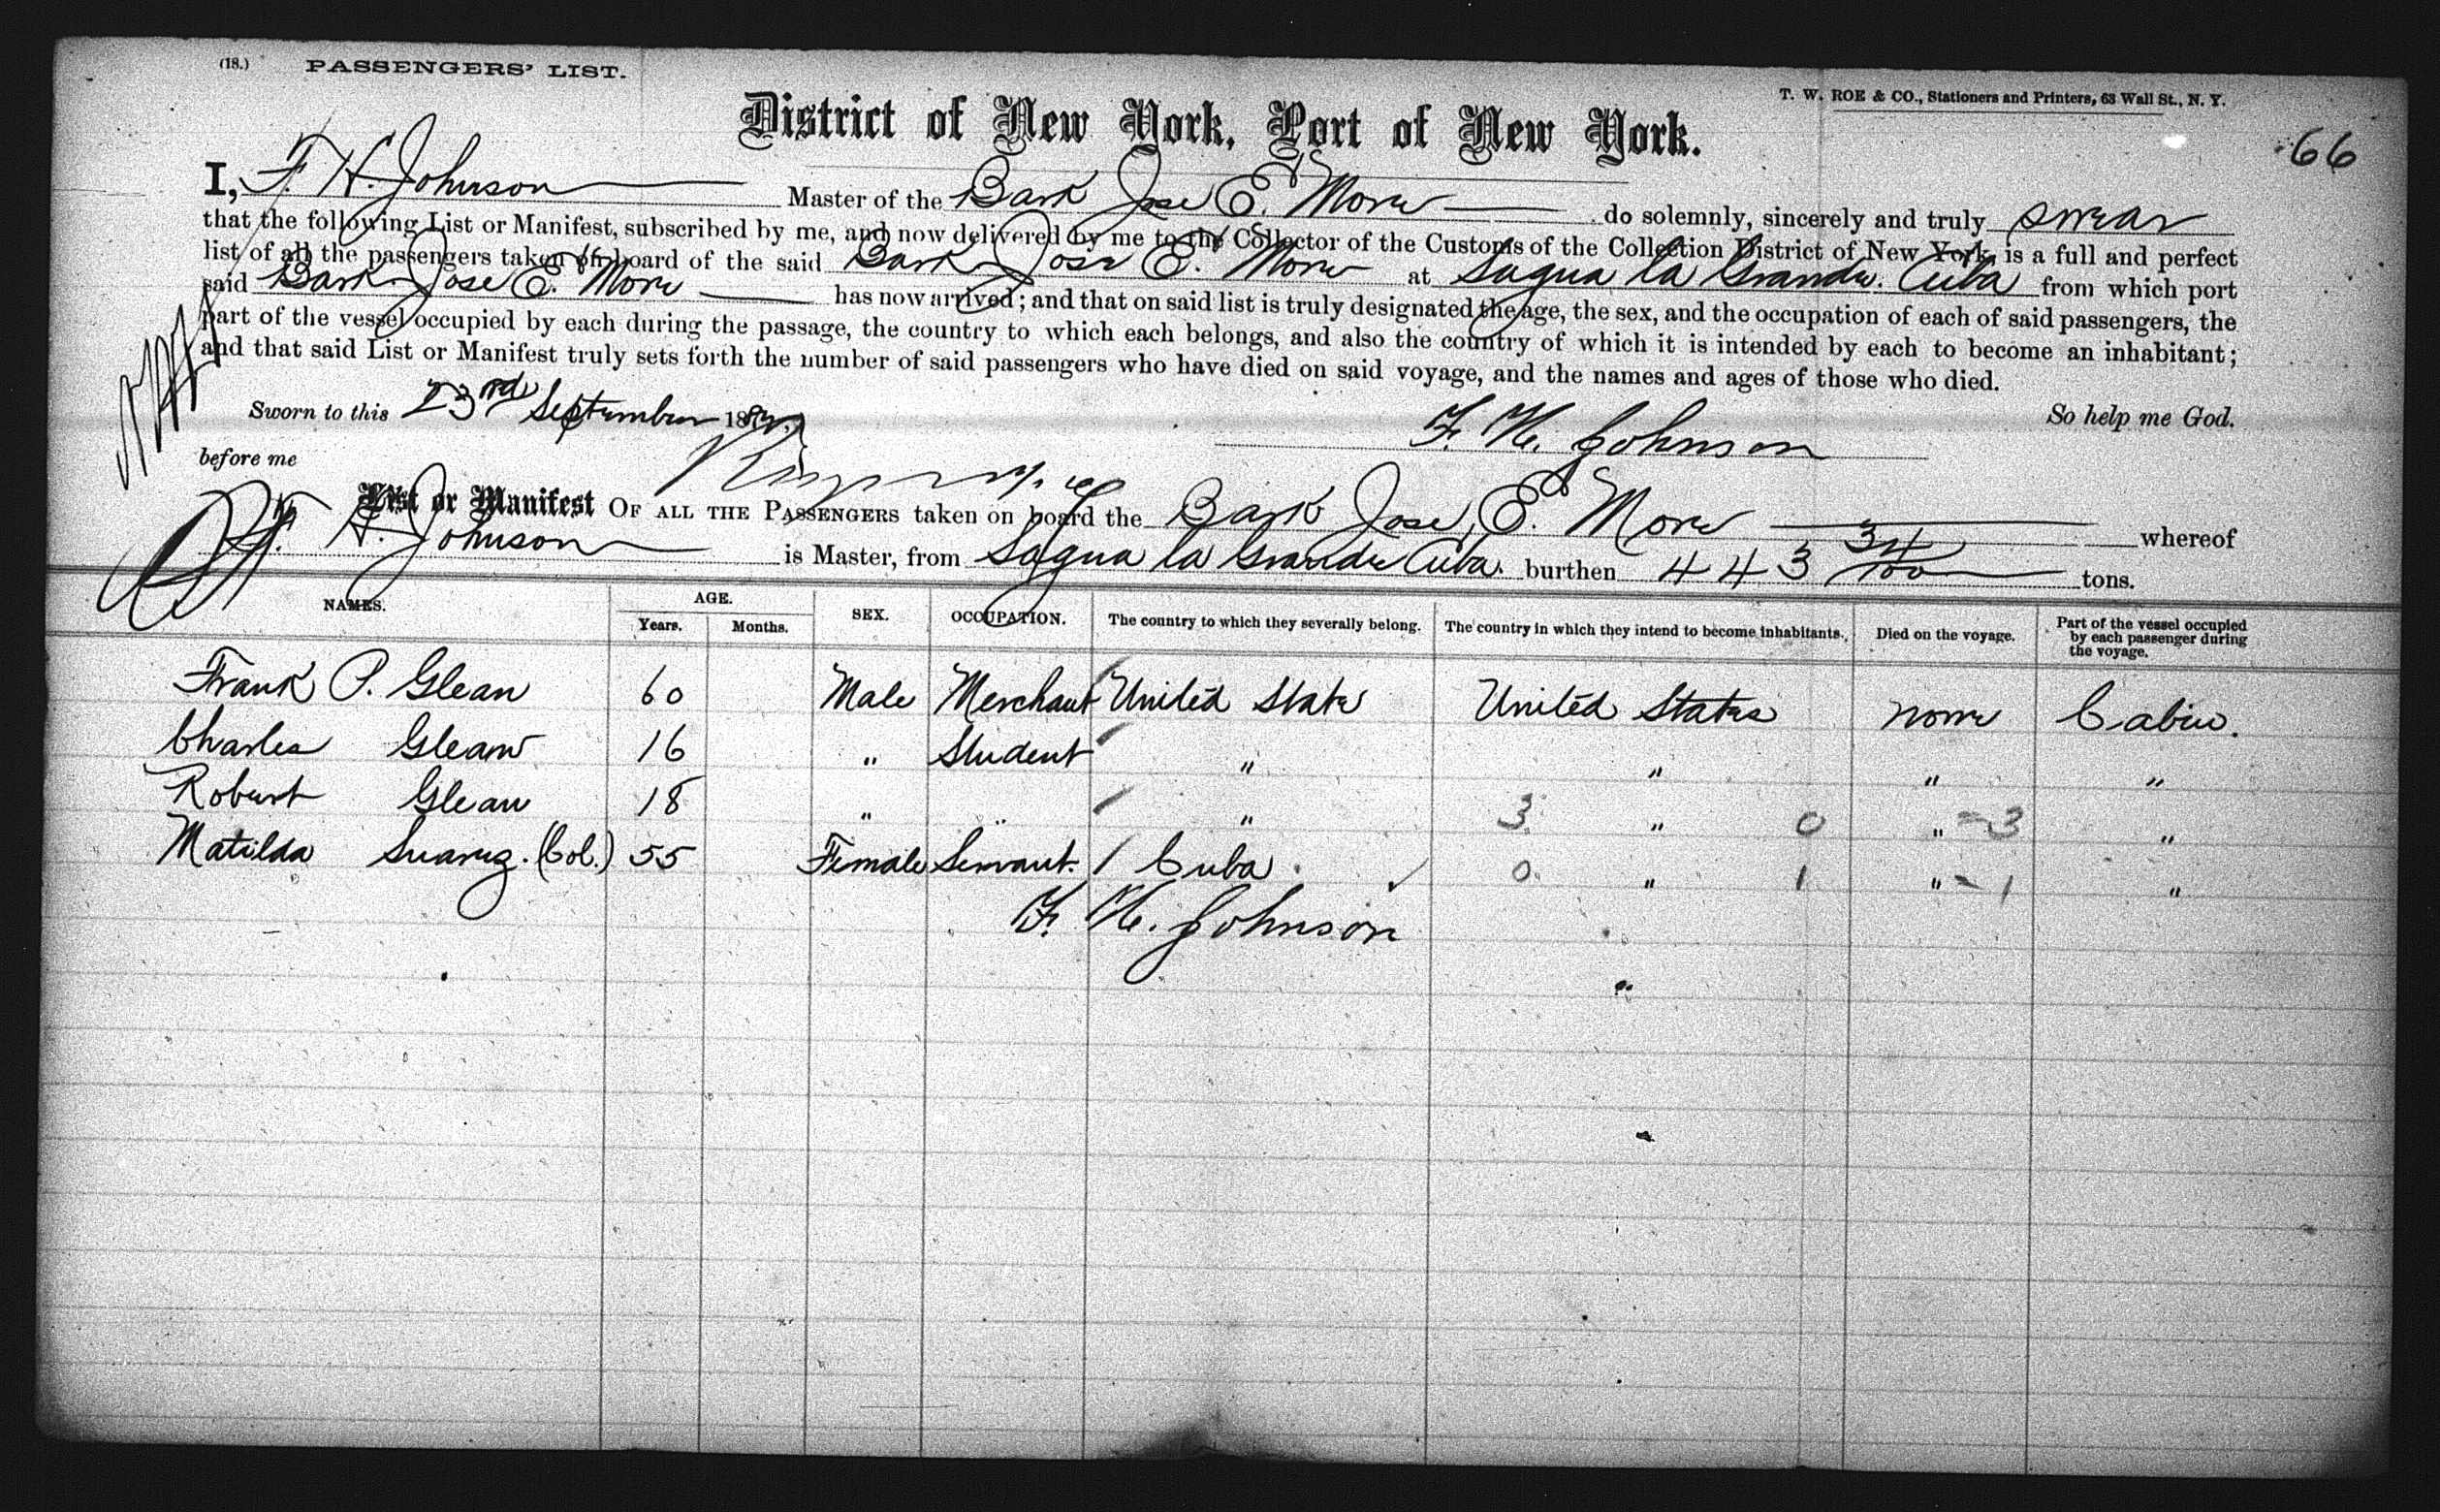 (18.) PASSENGERS' LIST.
T. W. ROE & CO., Stationers and Printers, 63 Wall St., N. Y.
District of New York, Port of New York.
66
I, F. H. Johnson Master of the Bark Jose E. More do solemnly, sincerely and truly swear
that the following List or Manifest, subscribed by me, and now delivered by me to the Collector of the Customs of the Collection District of New York, is a full and perfect
list of all the passengers taken on board of the said Bark Jose E. More at Sagua la Grande. Cuba from which port
said Bark Jose E. More has now arrived; and that on said list is truly designated the age, the sex, and the occupation of each of said passengers, the
part of the vessel occupied by each during the passage, the country to which each belongs, and also the country of which it is intended by each to become an inhabitant;
and that said List or Manifest truly sets forth the number of said passengers who have died on said voyage, and the names and ages of those who died.
Sworn to this 23rd September 188
So help me God.
F. H. Johnson
before me
List or Manifest OF ALL THE PASSENGERS taken on board the Bark Jose E. More whereof
F. H. Johnson is Master, from Sagua la Grande Cuba. burthen 443 34/100 tons.
NAMES. AGE. Years. Months. SEX. OCCUPATION. The country to which they severally belong. The country in which they intend to become inhabitants. Died on the voyage. Part of the vessel occupied by each passenger during the voyage.
Frank P. Glean 60 Male Merchant United State United States none Cabin.
Charles Glean 16 " Student " " " "
Robert Glean 18 " " " 3 " 0 " - 3 "
Matilda Suarez. (Col.) 55 Female Servant. Cuba. 0 " 1 " - 1 "
F. H. Johnson